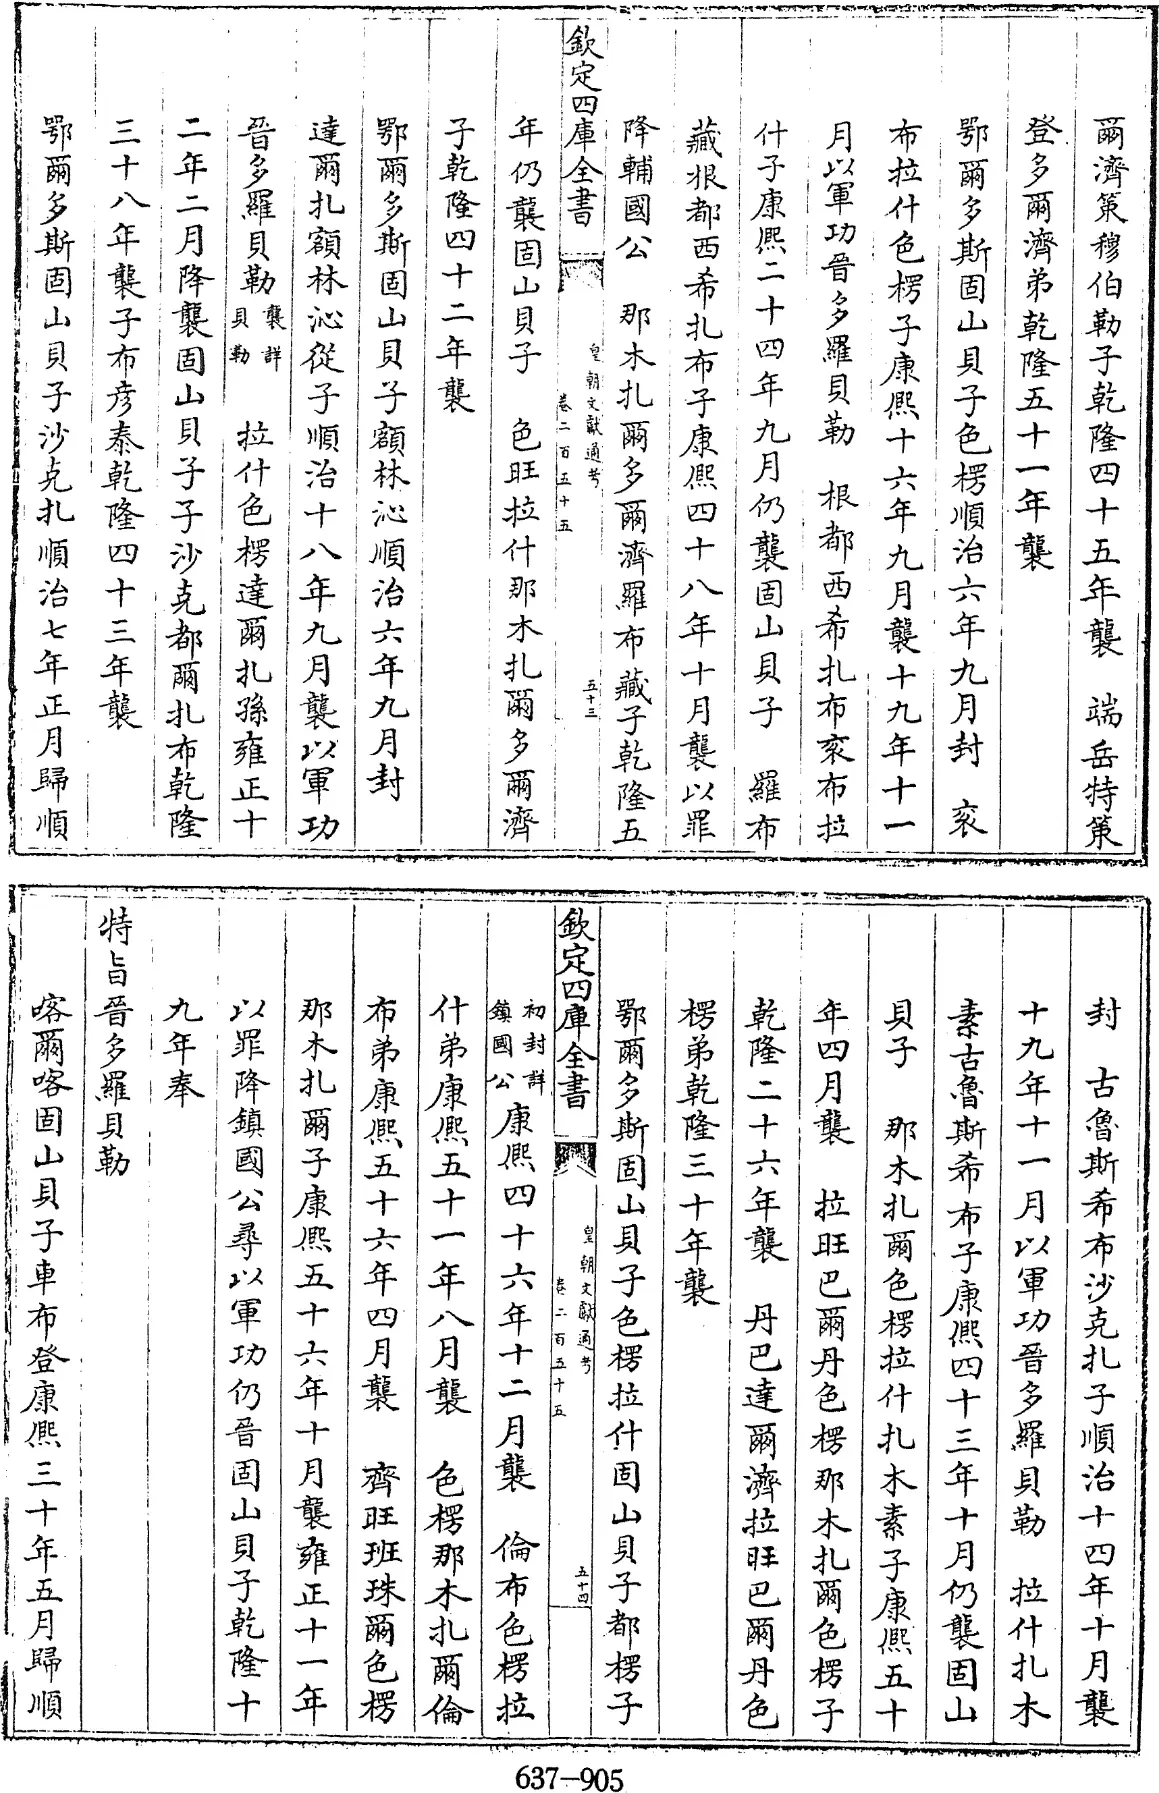 爾濟策穆伯勒子乾隆四十五年襲　端岳特策
登多爾濟弟乾隆五十一年襲
鄂爾多斯固山貝子色楞順治六年九月封　衮
布拉什色楞子康熙十六年九月襲十九年十一
月以軍功晉多羅貝勒　根都西希扎布衮布拉
什子康熙二十四年九月仍襲固山貝子　羅布
藏根都西希扎布子康熙四十八年十月襲以罪
降輔國公　那木扎爾多爾濟羅布藏子乾隆五
欽定四庫全書
皇朝文獻通考
卷二百五十五
五十三
年仍襲固山貝子　色旺拉什那木扎爾多爾濟
子乾隆四十二年襲
鄂爾多斯固山貝子額林沁順治六年九月封
達爾扎額林沁從子順治十八年九月襲以軍功
晉多羅貝勒襲詳貝勒　拉什色楞達爾扎孫雍正十
二年二月降襲固山貝子子沙克都爾扎布乾隆
三十八年襲子布彦泰乾隆四十三年襲
鄂爾多斯固山貝子沙克扎順治七年正月歸順
封　古魯斯希布沙克扎子順治十四年十月襲
十九年十一月以軍功晉多羅貝勒　拉什扎木
素古魯斯希布子康熙四十三年十月仍襲固山
貝子　那木扎爾色楞拉什扎木素子康熙五十
年四月襲　拉旺巴爾丹色楞那木扎爾色楞子
乾隆二十六年襲　丹巴達爾濟拉旺巴爾丹色
楞弟乾隆三十年襲
鄂爾多斯固山貝子色楞拉什固山貝子都楞子
欽定四庫全書
皇朝文獻通考
卷二百五十五
五十四
初封詳鎮國公康熙四十六年十二月襲　倫布色楞拉
什弟康熙五十一年八月襲　色楞那木扎爾倫
布弟康熙五十六年四月襲　齊旺班珠爾色楞
那木扎爾子康熙五十六年十月襲雍正十一年
以罪降鎮國公尋以軍功仍晉固山貝子乾隆十
九年奉
特旨晉多羅貝勒
喀爾喀固山貝子車布登康熙三十年五月歸順
637-905